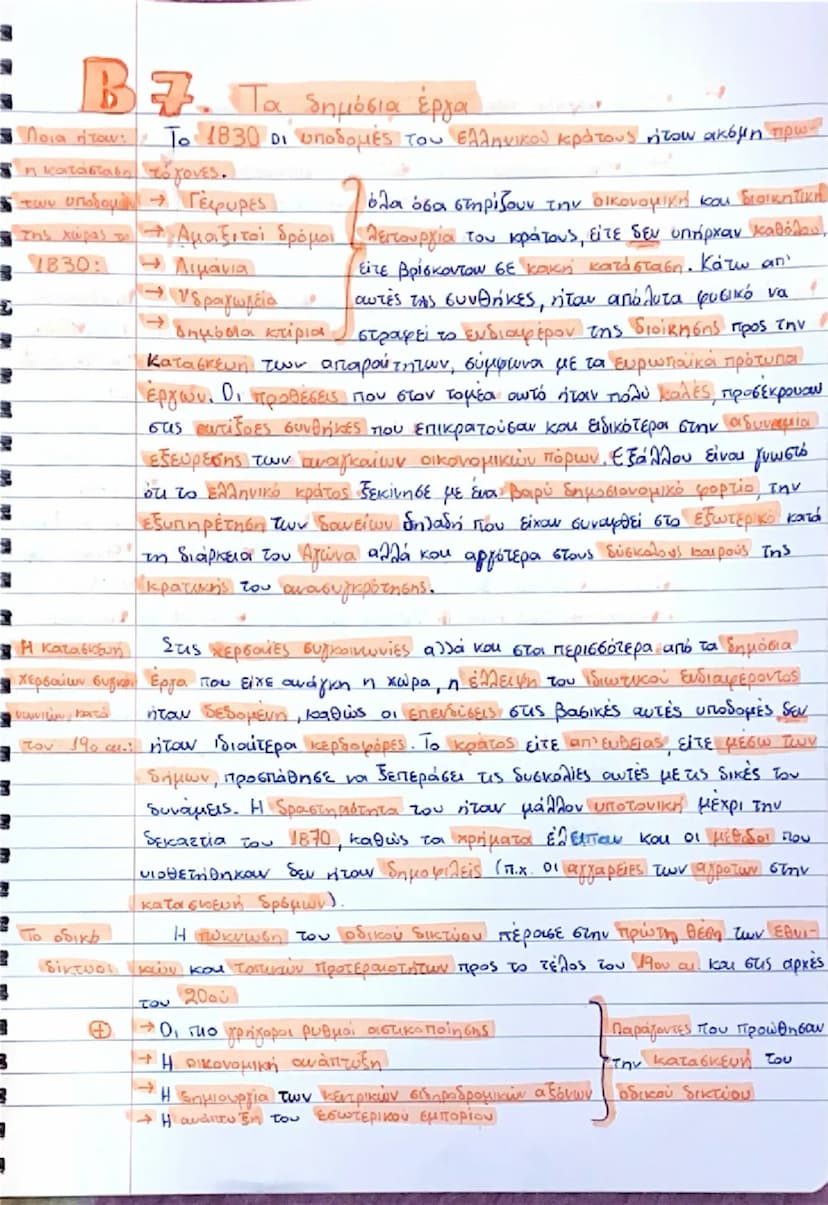 Β 7. Τα δημόσια έργα
Ποια ήταν: Το 1830 οι υποδομές του ελληνικού κράτους ήταν ακόμη πρω-
η κατάσταση τόγονες.
των υποδομών → Γέφυρες όλα όσα στηρίζουν την οικονομική και διοικητική
της χώρας το → Αμαξιτοί δρόμοι λειτουργία του κράτους, είτε δεν υπήρχαν καθόλου,
1830: → Λιμάνια είτε βρίσκονταν σε κακή κατάσταση. Κάτω απ'
→ Υδραγωγεία αυτές τις συνθήκες, ήταν απόλυτα φυσικό να
→ Δημόσια κτίρια στραφεί το ενδιαφέρον της διοίκησης προς την
κατασκευή των απαραίτητων, σύμφωνα με τα ευρωπαϊκά πρότυπα
έργων. Οι προθέσεις που στον τομέα αυτό ήταν πολύ καλές, προσέκρουαν
στις αντίξοες συνθήκες που επικρατούσαν και ειδικότερα στην αδυναμία
εξεύρεσης των αναγκαίων οικονομικών πόρων. Εξάλλου είναι γνωστό
ότι το ελληνικό κράτος ξεκίνησε με ένα βαρύ δημοσιονομικό φορτίο, την
εξυπηρέτηση των δανείων δηλαδή που είχαν συναφθεί στο εξωτερικό κατά
τη διάρκεια του Αγώνα αλλά και αργότερα στους δύσκολους καιρούς της
κρατικής του ανασυγκρότησης.
Η κατασκευή Στις χερσαίες συγκοινωνίες αλλά και στα περισσότερα από τα δημόσια
χερσαίων συγκοι έργα που είχε ανάγκη η χώρα, η έλλειψη του ιδιωτικού ενδιαφέροντος
νωνιών κατά ήταν δεδομένη, καθώς οι επενδύσεις στις βασικές αυτές υποδομές δεν
τον 19ο αι.: ήταν ιδιαίτερα κερδοφόρες. Το κράτος είτε απ' ευθείας, είτε μέσω των
δήμων, προσπάθησε να ξεπεράσει τις δυσκολίες αυτές με τις δικές του
δυνάμεις. Η δραστηριότητα του ήταν μάλλον υποτονική μέχρι την
δεκαετία του 1870, καθώς τα χρήματα έλειπαν και οι μέθοδοι που
υιοθετήθηκαν δεν ήταν δημοφιλείς (π.χ. οι αγγαρείες των αγροτών στην
κατασκευή δρόμων).
Το οδικό Η πύκνωση του οδικού δικτύου πέρασε στην πρώτη θέση των εθνι-
δίκτυο: κών και τοπικών προτεραιοτήτων προς το τέλος του 19ου αι. και στις αρχές
του 20ού
⊕ → Οι πιο γρήγοροι ρυθμοί αστικοποίησης Παράγοντες που προώθησαν
→ Η οικονομική ανάπτυξη την κατασκευή του
→ Η δημιουργία των κεντρικών σιδηροδρομικών αξόνων οδικού δικτύου
→ Η ανάπτυξη του εσωτερικού εμπορίου